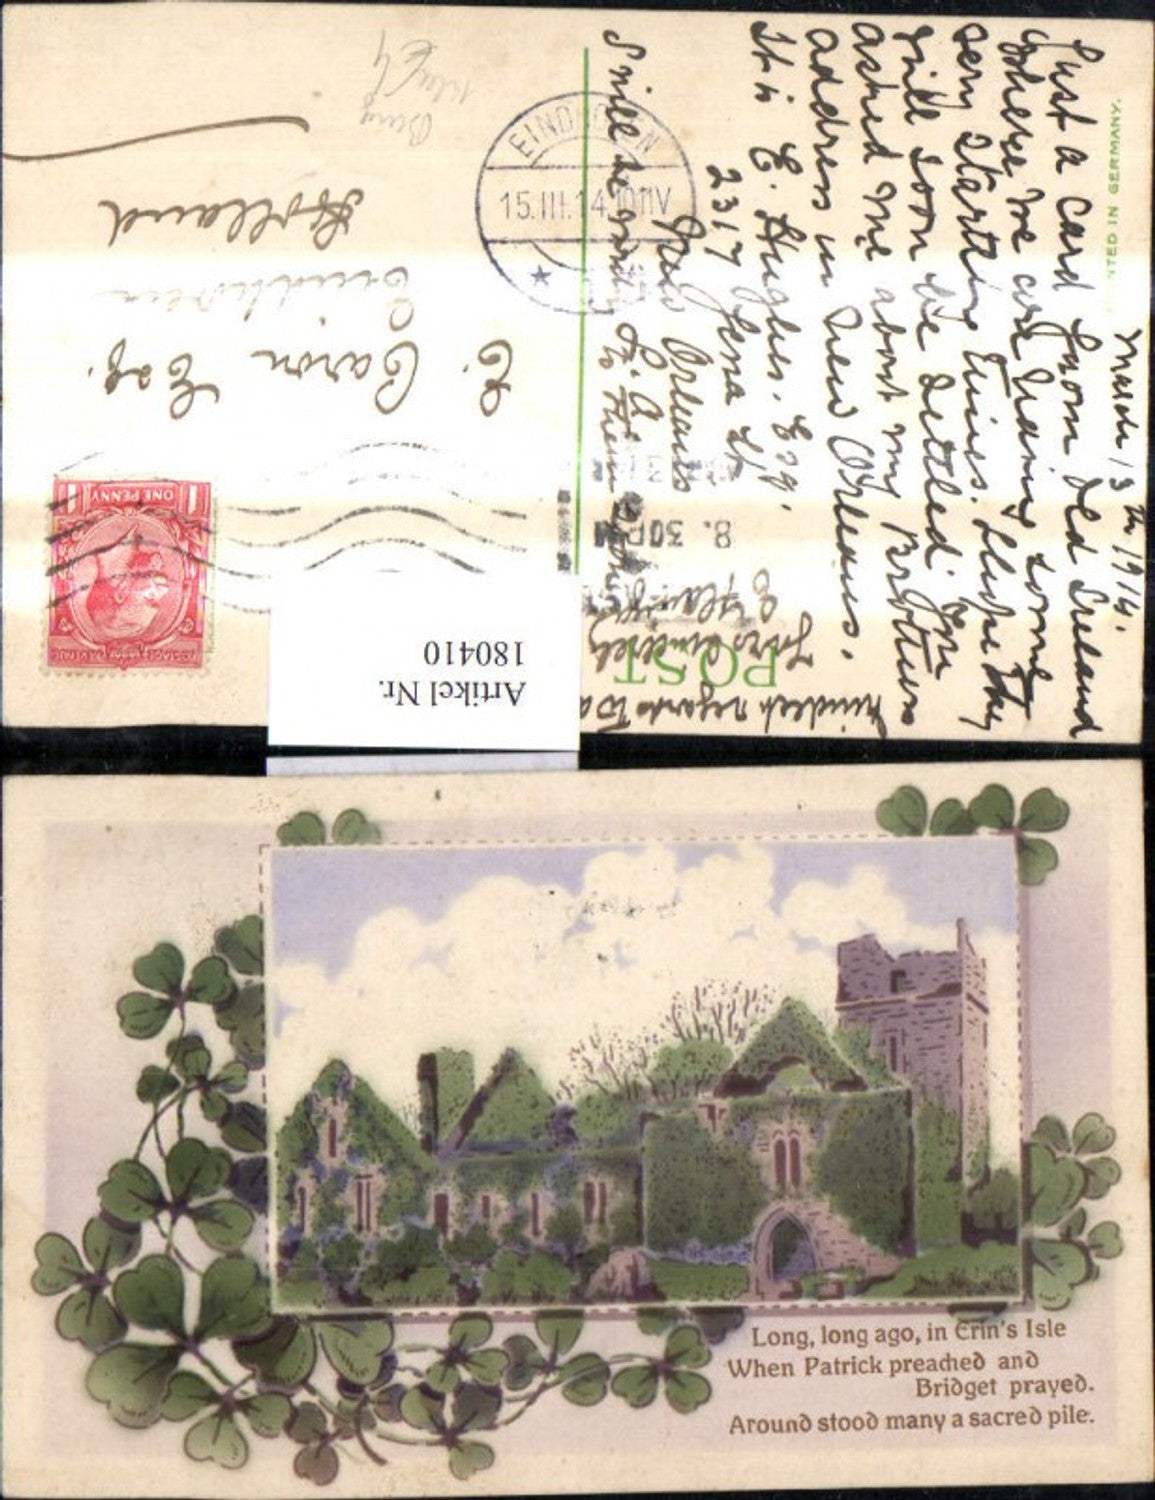 March 13th 1914.
Just a card from Old Ireland
where we are having some
very startling times. I hope they
will soon be settled. You
asked me about my Brothers
address in New Orleans.
It is E. Hughes. Esq.
2317 Jena St
New Orleans
U.S.A.
I will be
Kindest regards to
Yours sincerely
POST
PRINTED IN GERMANY.
E. Caron Esq.
Eindhoven
Holland
EINDHOVEN
15.III.14
8. 30PM
ONE PENNY
Artikel Nr.
180410
Long, long ago, in Erin's Isle
When Patrick preached and
Bridget prayed.
Around stood many a sacred pile.